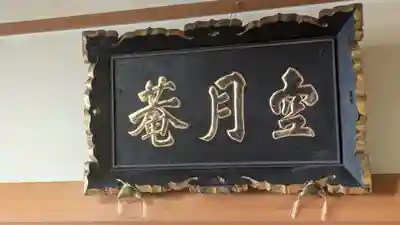 空月菴